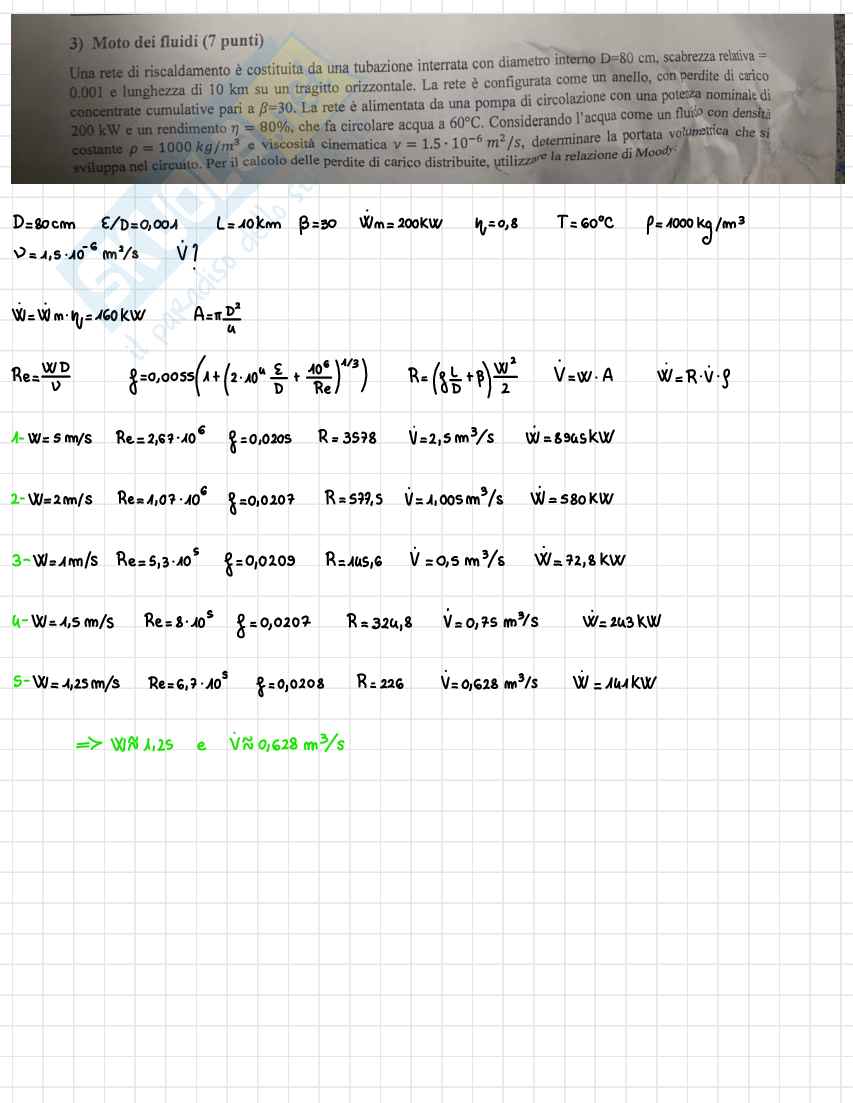 3) Moto dei fluidi (7 punti)
Una rete di riscaldamento è costituita da una tubazione interrata con diametro interno D=80 cm, scabrezza relativa =
0.001 e lunghezza di 10 km su un tragitto orizzontale. La rete è configurata come un anello, con perdite di carico
concentrate cumulative pari a β=30. La rete è alimentata da una pompa di circolazione con una potenza nominale di
200 kW e un rendimento η = 80%, che fa circolare acqua a 60°C. Considerando l'acqua come un fluido con densità
costante ρ = 1000 kg/m³ e viscosità cinematica ν = 1.5 · 10⁻⁶ m²/s, determinare la portata volumetrica che si
sviluppa nel circuito. Per il calcolo delle perdite di carico distribuite, utilizzare la relazione di Moody.
D=80cm ε/D=0,001 L=10km β=30 Ẇm=200KW η=0,8 T=60°C ρ=1000kg/m³
ν=1,5·10⁻⁶ m²/s V̇?
Ẇ=Ẇm·η=160KW A=π D²/4
Re=WD/ν f=0,0055(1+(2·10⁴ ε/D + 10⁶/Re)^1/3) R=(f L/D+β) W²/2 V̇=W·A Ẇ=R·V̇·ρ
1- W=5m/s Re=2,67·10⁶ f=0,0205 R=3578 V̇=2,5m³/s Ẇ=8945KW
2- W=2m/s Re=1,07·10⁶ f=0,0207 R=577,5 V̇=1,005m³/s Ẇ=580KW
3- W=1m/s Re=5,3·10⁵ f=0,0209 R=145,6 V̇=0,5m³/s Ẇ=72,8KW
4- W=1,5m/s Re=8·10⁵ f=0,0207 R=324,8 V̇=0,75m³/s Ẇ=243KW
5- W=1,25m/s Re=6,7·10⁵ f=0,0208 R=226 V̇=0,628m³/s Ẇ=141KW
=> W≈1,25 e V̇≈0,628m³/s